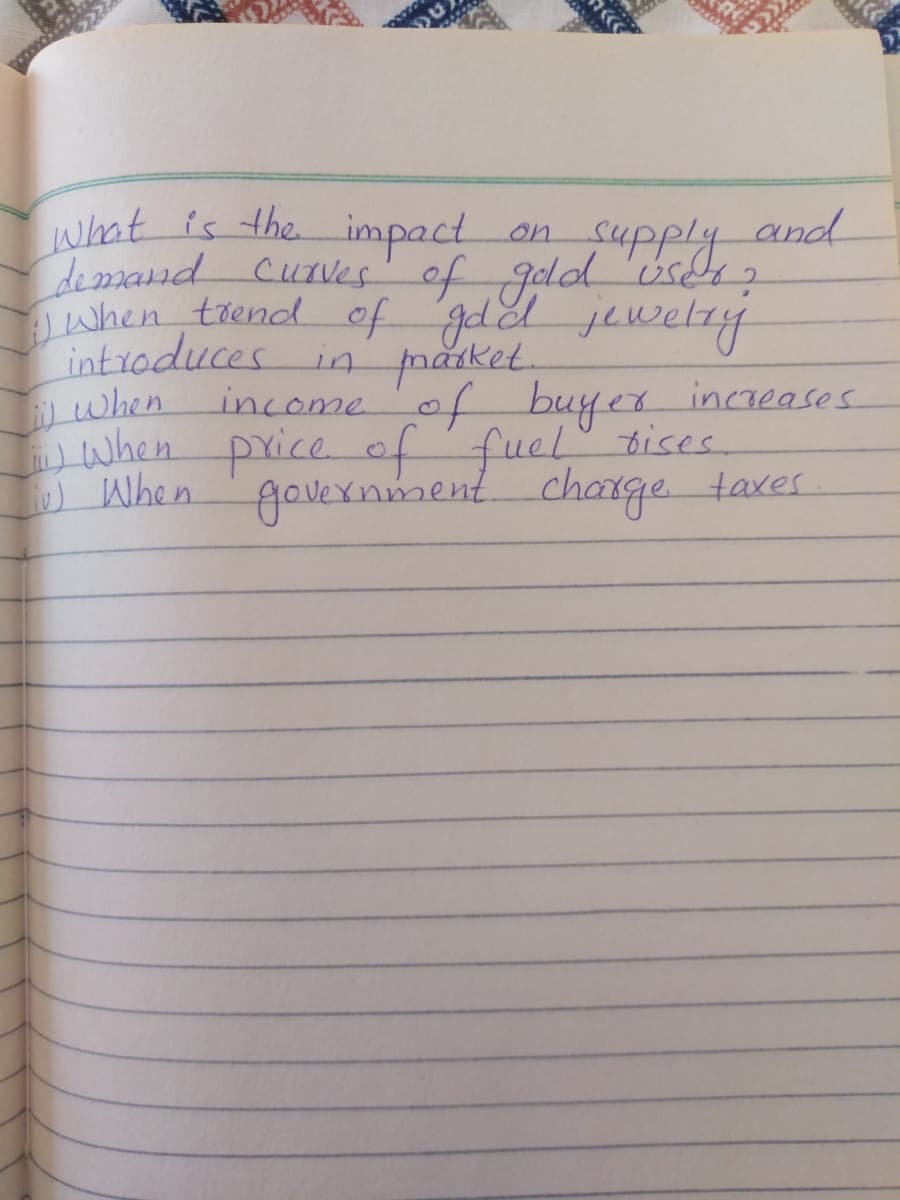 What is the impact on supply and
demand curves of gold user?
i) When trend of gold jewelry
introduces in market.
ii) When income of buyer increases
iii) When price of fuel rises.
iv) When government charge taxes.